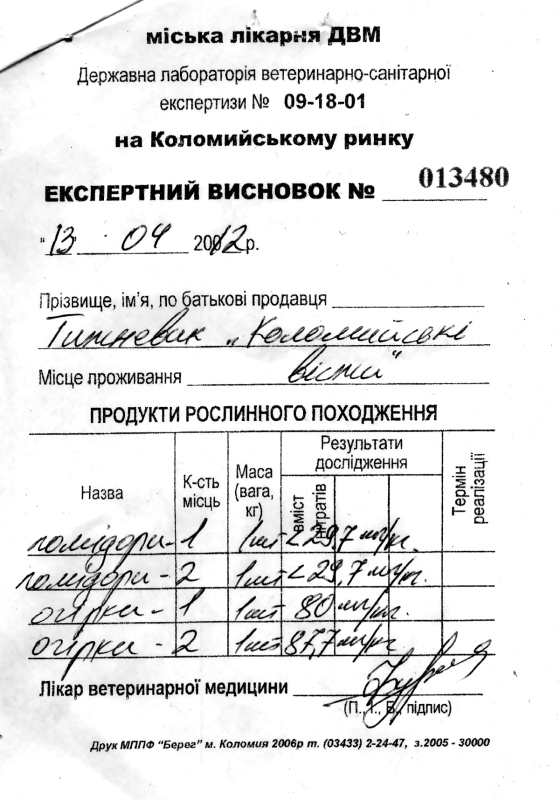 міська лікарня ДВМ
Державна лабораторія ветеринарно-санітарної
експертизи № 09-18-01
на Коломийському ринку
ЕКСПЕРТНИЙ ВИСНОВОК № 013480
"13" 04 20012р.
Прізвище, ім'я, по батькові продавця
Тижневик „Коломийські
Місце лроживання вісти"
ПРОДУКТИ РОСЛИННОГО ПОХОДЖЕННЯ
Назва К-сть місць Маса (вага, кг) Результати дослідження Термін реалізації
вміст нітратів
помідори - 1 1шт <29,7 мг/кг.
помідори - 2 1шт <29,7 мг/кг.
огірки - 1 1шт 80 мг/кг.
огірки - 2 1шт 87,7 мг/кг
Лікар ветеринарної медицини
(П., І., Б., підпис)
Друк МППФ "Берег" м. Коломия 2006р т. (03433) 2-24-47, з.2005 - 30000